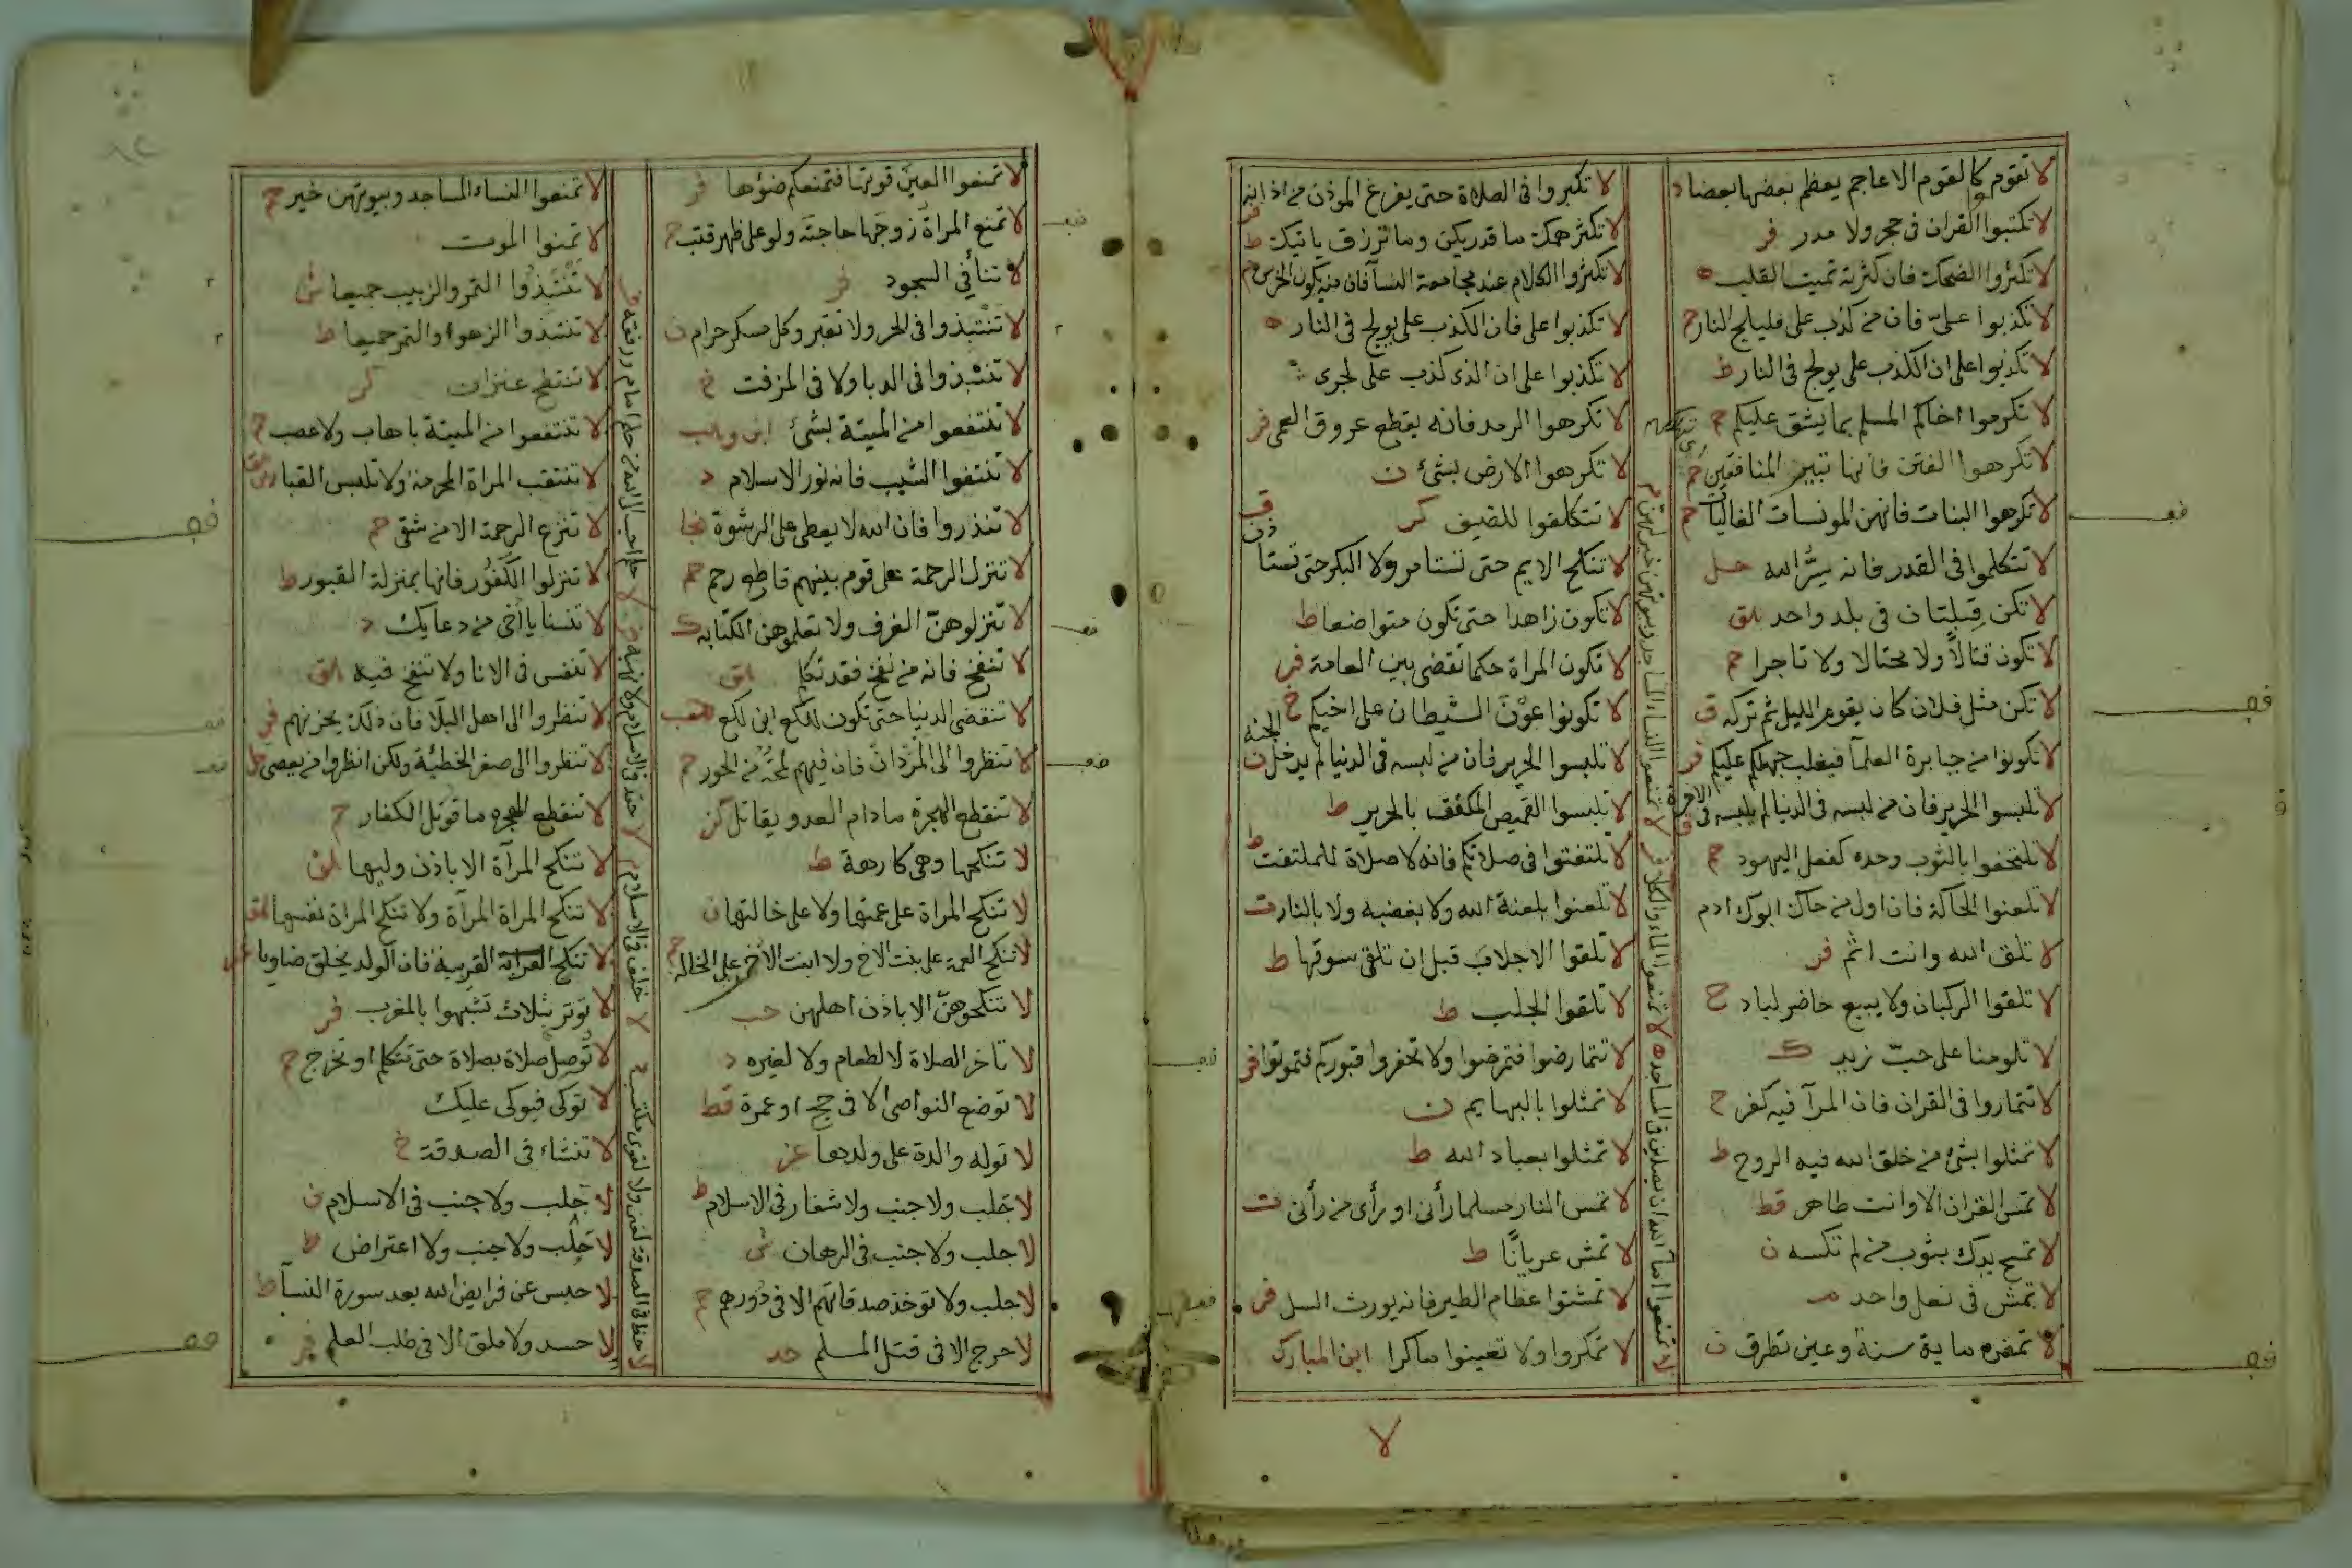 لا تقوموا كا لقوم الاعاجم يعظم بعضها بعضا د
لا تكتبوا القران في حجر ولا مدر فر
لا تكثروا الضحك فان كثرته تميت القلب ه
لا تكذبوا علىّ فان من كذب على فليلج النار حم
لا تكذبوا على ان الكذب على يولج في النار ط
لا تكرموا اخاكم المسلم بما يشق عليكم
لا تكرهوا الفتن فانها تبير المنافقين
لا تكرهوا البنات فانهن المونسات الغاليات حم
لا تتكلموا في القدر فانه سِرُّ الله حل
لا تكن قبلتان في بلد واحد هق
لا تكون قتالاً ولا محتالا ولا تاجرا حم
لا تكن مثل فلان كان يقوم الليل ثم تركه ق
لا تكونوا من جبابرة العلمآ فيغلب جهلكم عليكم فر
لا تلبسوا الحرير فان من لبسه في الدنيا لم يلبسه في الاخرة ق
لا تلتحفوا بالثوب وحده كفعل اليهود حم
لا تلعنوا الحاكة فان اول من حاك ابوك ادم
لا تلق الله وانت اثم فر
لا تلقوا الركبان ولا يبيع حاضر لباد ح
لا تلومنا على حبّ زيد ك
لا تتماروا في القران فان المرآ فيه كفر ح
لا تمثلوا بشئ من خلق الله فيه الروح ط
لا تمس القران الا وانت طاهر قط
لا تمسح يدك بثوب من لم تكسه ن
لا تمش في نعل واحد
لا تمضه ماية سنة وعين تطرف ن
لا تكبروا في الصلاة حتى يفرغ الموذن من اذانه
لا تكثر همك ما قدر يكن وما ترزق ياتيك ط
لا تكثروا الكلام عند مجامعة النسآ فان منه يكون الخرس
لا تكذبوا على فان الكذب على يولج في النار ه
لا تكذبوا على ان الذى كذب على لجرى
لا تكرهوا الرمد فانه يقطع عروق العمى فر
لا تكرهوا الارض بشئ ن
لا تتكلفوا للضيف كر
لا تنكح الايم حتى تستامر ولا البكر حتى تستاذن ق
لا تكون زاهدا حتى تكون متواضعا ط
لا تكون المراة حكما تقضى بين العامة فر
لا تكونوا عوْنَ الشيطان على اخيكم خ
لا تلبسوا الحرير فان من لبسه في الدنيا لم يدخل الجنه ن
لا تلبسوا القميص المكفف بالحرير ط
لا تلتفتوا في صلاتكم فانه لا صلاة للملتفت ط
لا تلعنوا بلعنة الله ولا بغضبه ولا بالنار ت
لا تلقوا الاجلاب قبل ان تلقى سوقها ط
لا تلقوا الجلب ط
لا تتمارضوا فتمرضوا ولا تحفروا قبوركم فتموتوا فر
لا تمثلوا بالبهايم ن
لا تمثلوا بعباد الله ط
لا تمس النار مسلما رأنى او رأى من رأنى ت
لا تمش عريانًا ط
لا تمشتوا عظام الطير فانه يورث السل فر
لا تمكروا ولا تعينوا ماكرا ابن المبارك
لا تمنعوا امآ الله ان يصلين في المساجد ه لا تمنعوا الماء والكلا فر لا تمنعوا النساء المساجد وبيوتهن خير لهن
لا
لا تمنعوا العين قوتها فتمنعكم ضوْها فر
لا تمنع المراة زوجَها حاجتَه ولو على ظهر قتب ح
لا تنأ في السجود فر
لا تنتبذوا في الجر ولا نقير وكل مسكر حرام ن
لا تنتبذوا في الدبا ولا في المزفت خ
لا تنتفعوا من الميتة بشئ ابن وهب
لا تنتفوا الشيب فانه نور الاسلام د
لا تنذروا فان الله لا يعطى على الرشوة نجا
لا تنزل الرحمة على قوم بينهم قاطع رحم حم
لا تنزلوهنّ الغرف ولا تعلموهن الكتابه ك
لا تنفخ فانه من نفخ فقد تكلم هق
لا تنقضى الدنيا حتى تكون للكع ابن لكع
لا تنظروا الى المرْدانَ فان فيهم لمحَة من الحور حم
لا تنقطع الهجرة مادام العدو يقاتل كن
لا تنكحها وهى كارهة ط
لا تنكح المراة على عمتها ولا على خالتها ن
لا تنكح العمة على بنت الاخ ولا ابنت الاخ على الخاله م
لا تنكحوهنّ الا باذن اهلهن حب
لا تاخر الصلاة لا لطعام ولا لغيره د
لا توضع النواصى الا في حج او عمرة قط
لا توله والدة على ولدها عز
لا جَلب ولا جنب ولا شغار في الاسلام ط
لا جلب ولا جنب في الرهان ش
لا جلب ولا توخذ صدقاتهم الا في دُورهم حم
لا حرج الا في قتل المسلم حد
لا تمنعوا النساء المساجد وبيوتهن خير حم
لا تمنوا الموت
لا تنتبذوا التمر والزبيب جميعا ش
لا تنتبذوا الزهوا والتمر جميعا ط
لا تنتطح عنزان كر
لا تنتفعوا من الميتة باهاب ولا عصب ح
لا تنتقب المراة المحرمة ولا تلبس القبا
لا تنزع الرحمة الا من شقى حم
لا تنزلوا الكُفُور فانها بمنزلة القبور ط
لا تنسنا يا اخى من دعايك د
لا تنفس في الانا ولا تنفخ فيه هق
لا تنظروا الى اهل البلآ فان ذلك يحزنهم فر
لا تنظروا الى صغر الخطيئة ولكن انظروا من يعصى حل
لا تنقطع الهجره ما قوتل الكفار ح
لا تنكح المرآة الا باذن وليها هق
لا تنكح المراة المرآة ولا تنكح المراة نفسها هق
لا تنكح القرابة القريبة فان الولد يخلق ضاويا
لا توتر بثلاث تشبهوا بالمغرب فر
لا توصل صلاة بصلاة حتى تتكلم او تخرج حم
لا توكى فيوكى عليك
لا تنشاء في الصدقة خ
لا جلب ولا جنب في الاسلام ن
لا جلب ولا جنب ولا اعتراض ط
لا حبس عن فرايض الله بعد سورة النسآ ط
لا حسد ولا ملق الا في طلب العلم فر
لا حظ في الصدقة لغنى ولا لقوى مكتسب ح لا حلف في الاسلام م